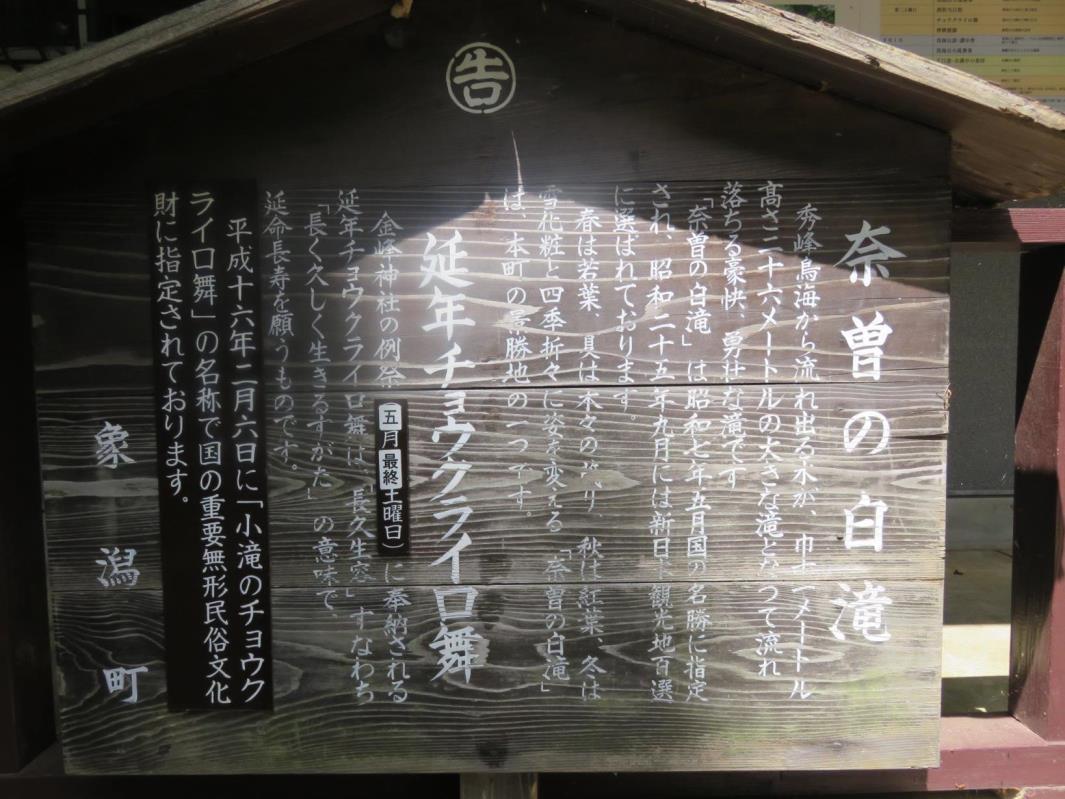 告
奈曽の白滝
秀峰鳥海から流れ出る水が、巾十一メートル
高さ二十六メートルの大きな滝となって流れ
落ちる豪快、勇壮な滝です
「奈曽の白滝」は昭和七年五月国の名勝に指定
され、昭和二十五年九月には新日本観光地百選
に選ばれております。
春は若葉、夏は木々の茂り 秋は紅葉、冬は
雪化粧と四季折々に姿を変える「奈曽の白滝」
は、本町の景勝地の一つです。
延年チョウクライロ舞
金峰神社の例祭(五月最終土曜日)に奉納される
延年チョウクライロ舞は「長久生容」すなわち
「長く久しく生きるすがた」の意味で、
延命長寿を願うものです。
平成十六年二月六日に「小滝のチョウク
ライロ舞」の名称で国の重要無形民俗文化
財に指定されております。
象潟町